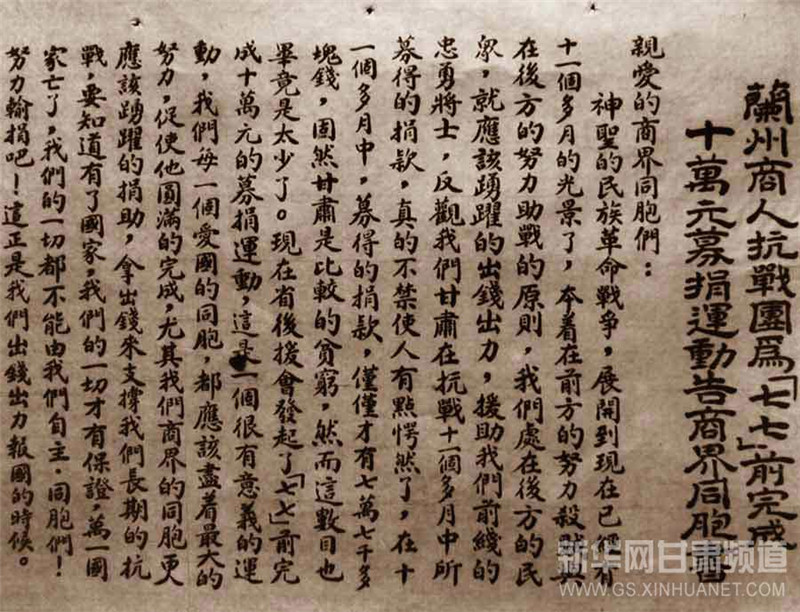 蘭州商人抗戰團爲「七七」前完成
十萬元募捐運動告商界同胞書
親愛的商界同胞們：
神聖的民族革命戰爭，展開到現在已經有
十一個多月的光景了，本着在前方的努力殺賊與
在後方的努力助戰的原則，我們處在後方的民
眾，就應該踴躍的出錢出力，援助我們前綫的
忠勇將士，反觀我們甘肅在抗戰十一個多月中所
募得的捐款，真的不禁使人有點愕然了，在十
一個多月中，募得的捐款，僅僅才有七萬七千多
塊錢，固然甘肅是比較的貧窮，然而這數目也
畢竟是太少了。現在省後援會發起了「七七」前完
成十萬元的募捐運動，這是一個很有意義的運
動，我們每一個愛國的同胞，都應該盡着最大的
努力，促使他圓滿的完成，尤其我們商界的同胞更
應該踴躍的捐助，拿出錢來支撐我們長期的抗
戰，要知道有了國家，我們的一切才有保證，萬一國
家亡了，我們的一切都不能由我們自主．同胞們！
努力輸捐吧！這正是我們出錢出力報國的時候。
新华网甘肃频道
WWW.GS.XINHUANET.COM